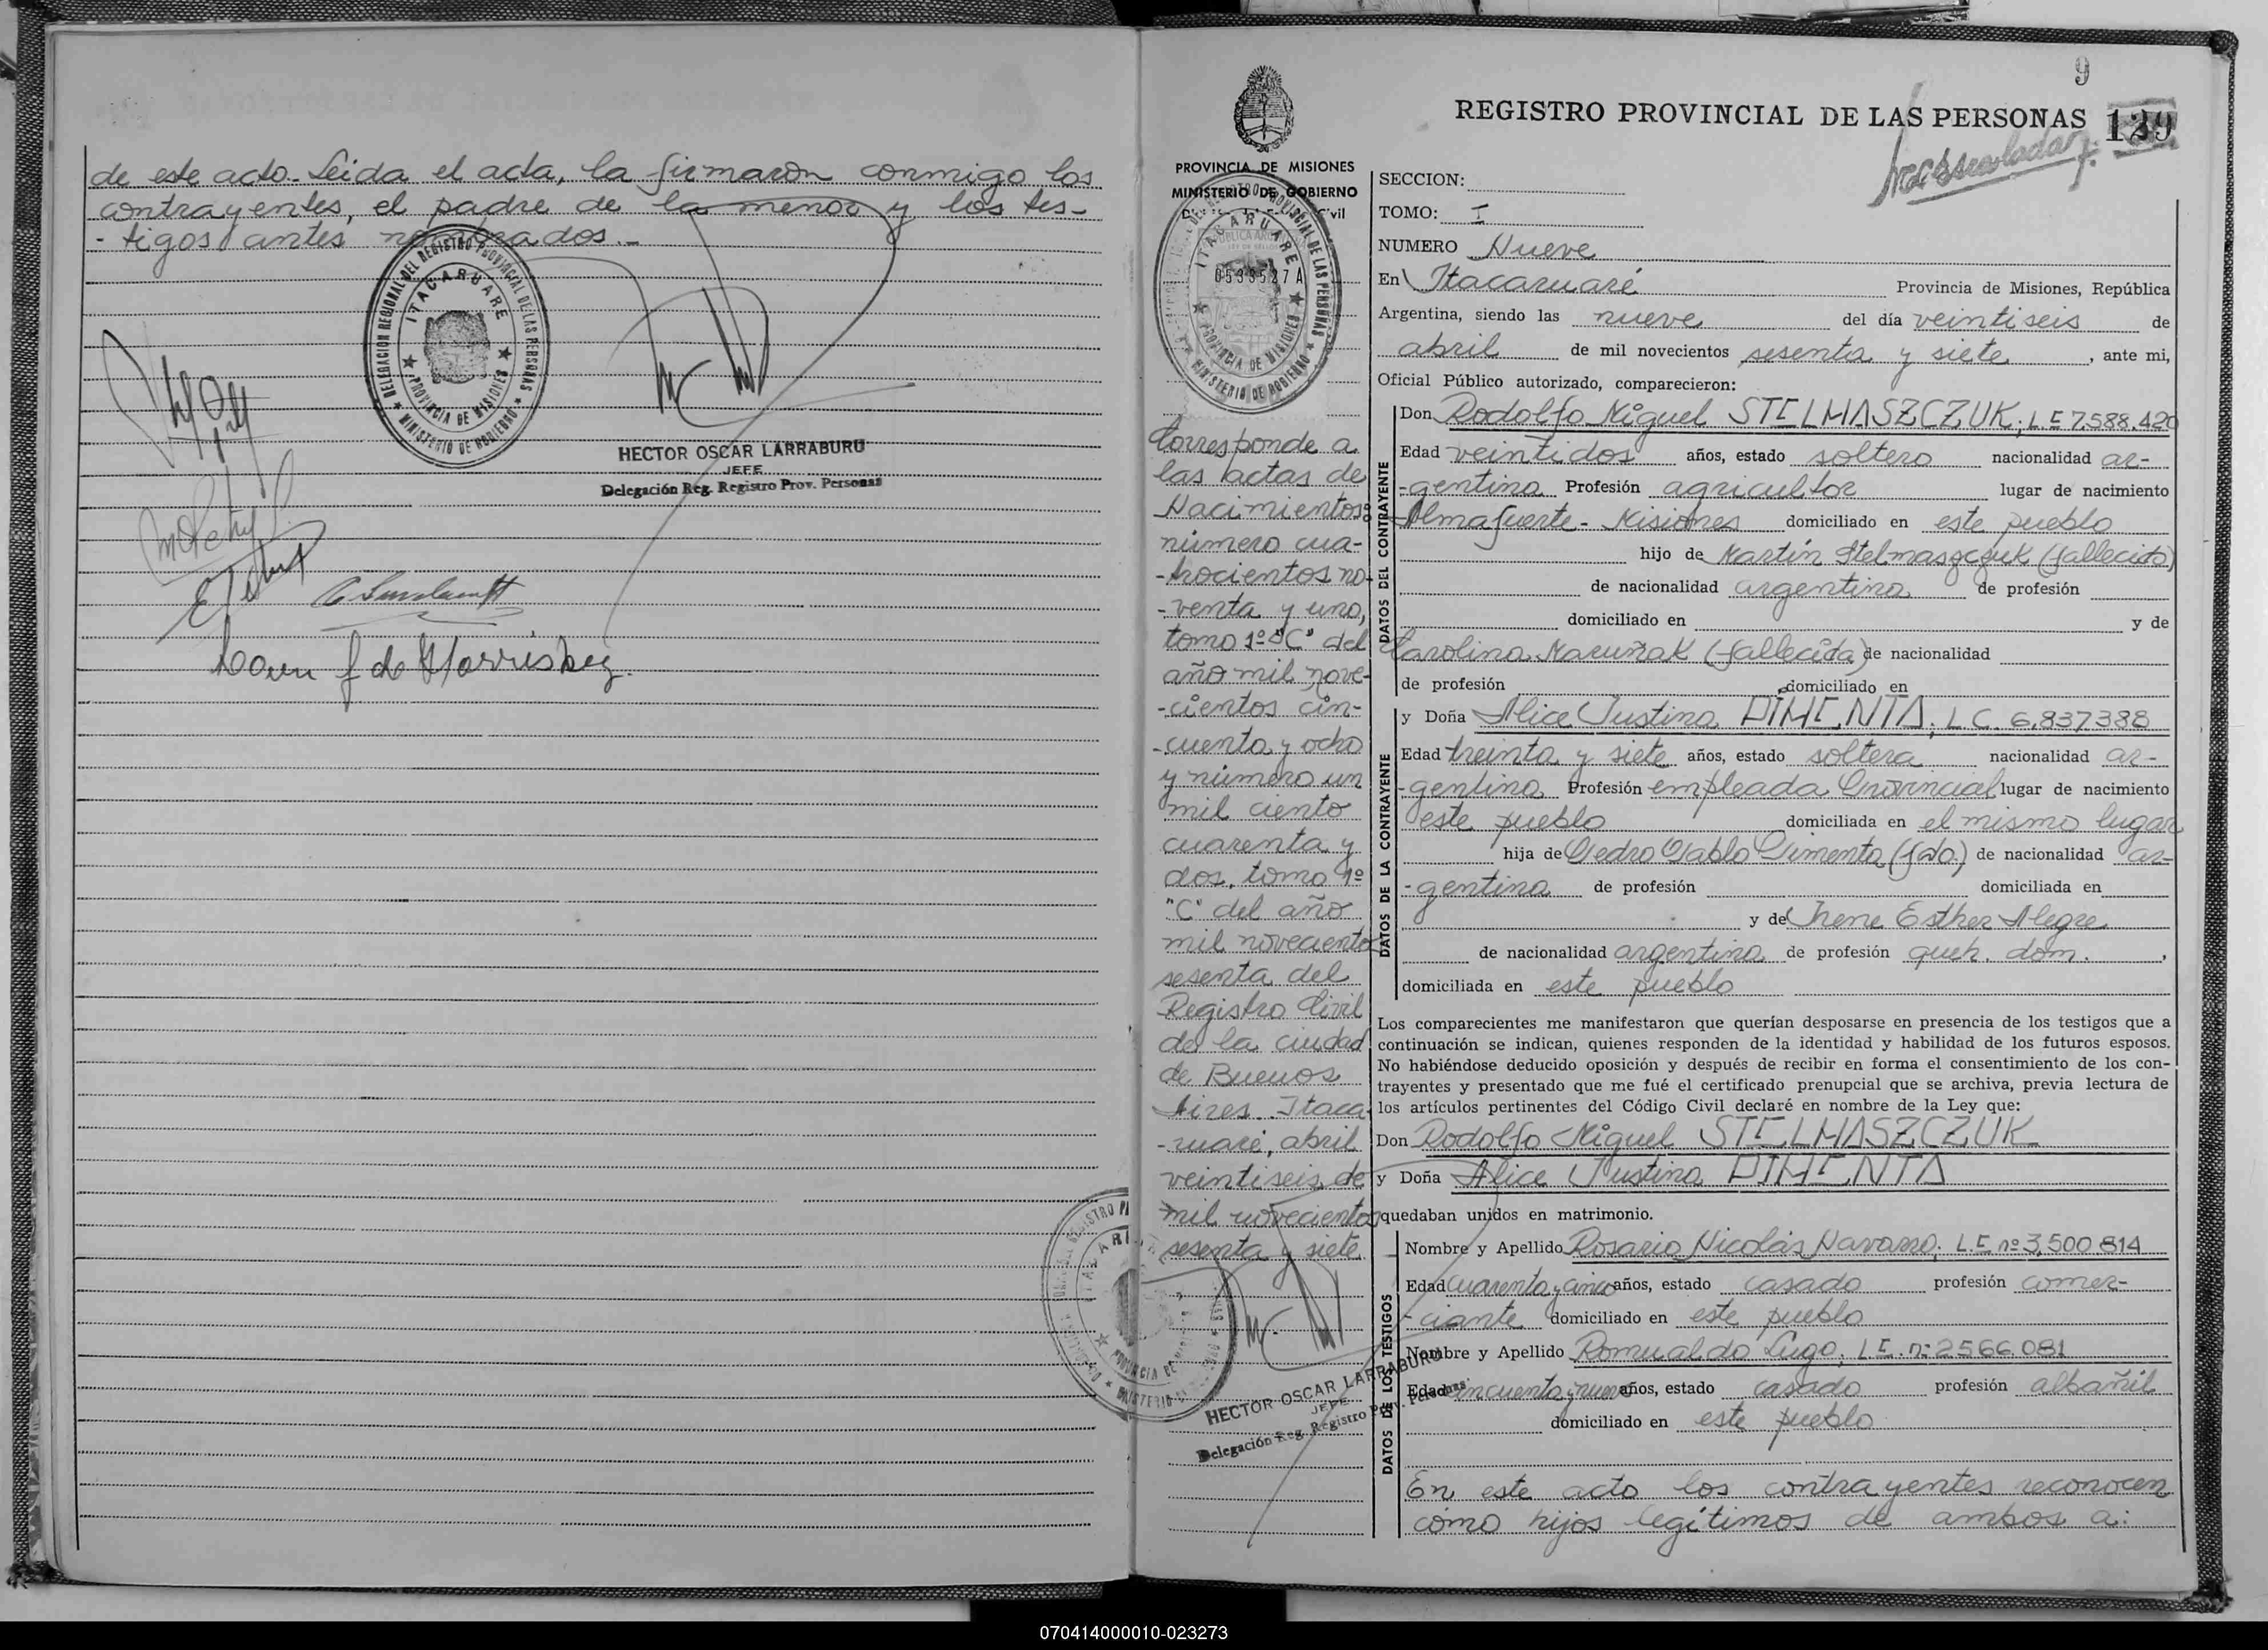 de este acto. Leida el acta, la firmaron conmigo los
contrayentes, el padre de la menor y los tes-
-tigos antes nombrados.-
DELEGACION REGIONAL DEL REGISTRO PROVINCIAL DE LAS PERSONAS
ITACARUARE
PROVINCIA DE MISIONES
MINISTERIO DE GOBIERNO
HECTOR OSCAR LARRABURU
JEFE
Delegación Reg. Registro Prov. Personas
9
REGISTRO PROVINCIAL DE LAS PERSONAS 129
PROVINCIA DE MISIONES
MINISTERIO DE GOBIERNO
ITACARUARE
0533527 A
PROVINCIA DE MISIONES
MINISTERIO DE GOBIERNO
Corresponde a
las actas de
Nacimientos:
número cua-
-trocientos no-
-venta y uno,
tomo 1º "C" del
año mil nove-
-cientos cin-
-cuenta y ocho
y número un
mil ciento
cuarenta y
dos, tomo 1º
"C" del año
mil novecientos
sesenta del
Registro Civil
de la ciudad
de Buenos
Aires. Itaca-
-ruaré, abril
veintiseis de
mil novecientos
sesenta y siete
HECTOR OSCAR LARRABURU
JEFE
Delegación Reg. Registro Prov. Personas
SECCION:
TOMO: I
NUMERO Nueve
En Itacaruaré Provincia de Misiones, República
Argentina, siendo las nueve del día veintiseis de
abril de mil novecientos sesenta y siete, ante mi,
Oficial Público autorizado, comparecieron:
DATOS DEL CONTRAYENTE
Don Rodolfo Miguel STELMASZCZUK; L.E 7.588.420
Edad veintidos años, estado soltero nacionalidad ar-
-gentina Profesión agricultor lugar de nacimiento
Almafuerte - Misiones domiciliado en este pueblo
hijo de Martín Stelmaszczuk (fallecido)
de nacionalidad argentina de profesión
domiciliado en y de
Carolina Maruñak (fallecida) de nacionalidad
de profesión domiciliado en
DATOS DE LA CONTRAYENTE
y Doña Alice Justina PIMENTA; L.C. 6.837.388
Edad treinta y siete años, estado soltera nacionalidad ar-
-gentina Profesión empleada Provincial lugar de nacimiento
este pueblo domiciliada en el mismo lugar
hija de Pedro Pablo Pimenta (fdo.) de nacionalidad ar-
-gentina de profesión domiciliada en
y de Irene Esther Alegre
de nacionalidad argentina de profesión queh. dom.,
domiciliada en este pueblo
Los comparecientes me manifestaron que querían desposarse en presencia de los testigos que a
continuación se indican, quienes responden de la identidad y habilidad de los futuros esposos.
No habiéndose deducido oposición y después de recibir en forma el consentimiento de los con-
trayentes y presentado que me fué el certificado prenupcial que se archiva, previa lectura de
los artículos pertinentes del Código Civil declaré en nombre de la Ley que:
Don Rodolfo Miguel STELMASZCZUK
y Doña Alice Justina PIMENTA
quedaban unidos en matrimonio.
DATOS DE LOS TESTIGOS
Nombre y Apellido Rosario Nicolás Navarro; L.E. nº 3.500.814
Edad cuarenta y cinco años, estado casado profesión comer-
-ciante domiciliado en este pueblo
Nombre y Apellido Romualdo Lugo; L.E. nº 2.566.081
Edad cincuenta y nueve años, estado casado profesión albañil
domiciliado en este pueblo
En este acto los contrayentes reconocen
como hijos legítimos de ambos a:
070414000010-023273